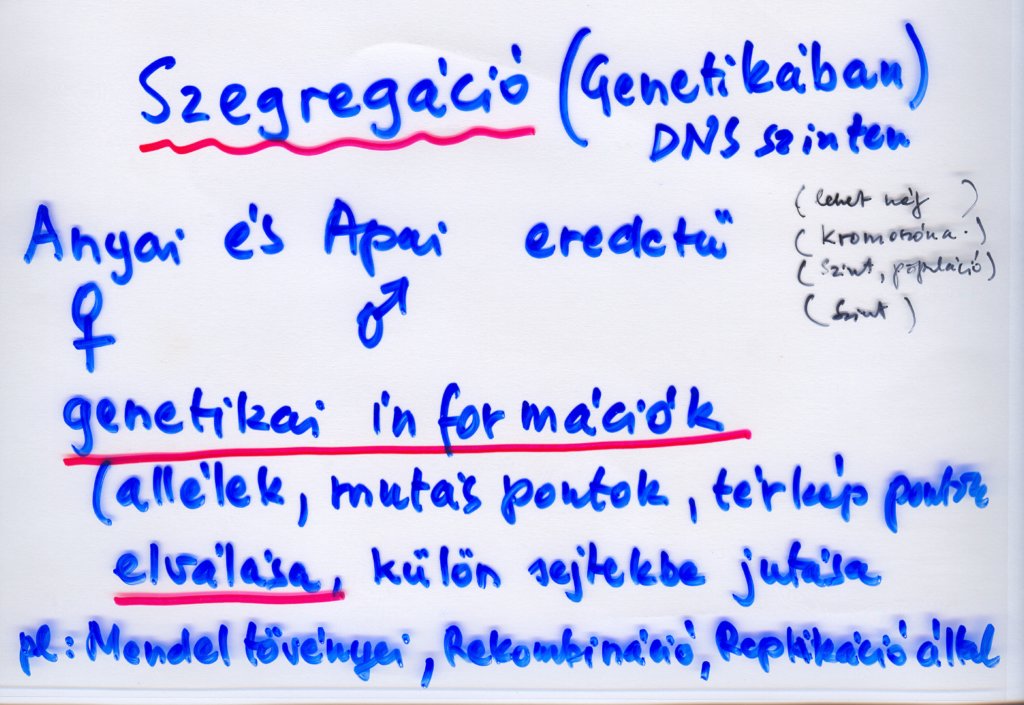 Szegregáció (Genetikában)
DNS szinten
Anyai és Apai eredetű
(lehet még)
(kromoszóma.)
(szint, populáció)
(szint)
♀ ♂
genetikai információk
(allélek, mutás pontok, térkép pontok
elválása, külön sejtekbe jutása
pl: Mendel tövényei, Rekombináció, Replikáció által